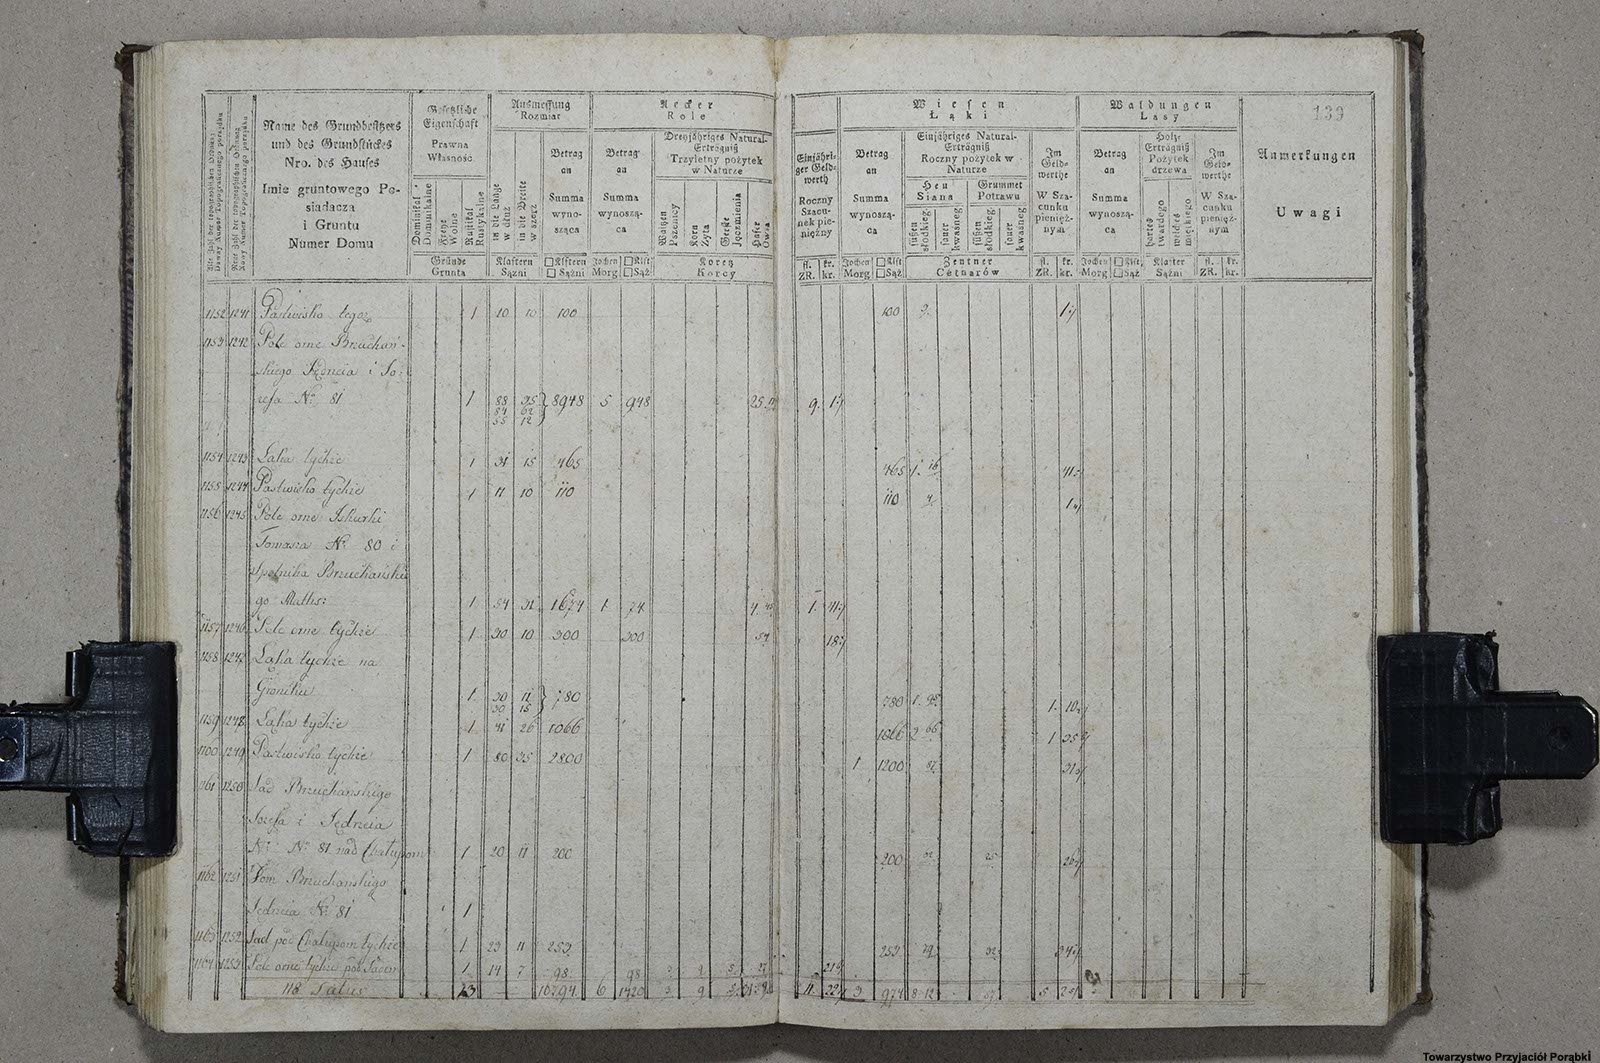 139
Alte Zahl der topographischen Ordnung
Dawny Numer Topograficznego porządku
Neue Zahl der topographischen Ordnung
Nowy Numer Topograficznego porządku
Name des Grundbesitzers
und des Grundstückes
Nro. des Hauses
Imie gruntowego Po-
siadacza
i Gruntu
Numer Domu
Gesetzliche
Eigenschaft
Prawna
Własność
Dominikal
Dominikalne
Freye
Wolne
Rustikal
Rustykalne
Gründe
Grunta
Ausmessung
Rozmiar
in die Länge
w dłuż
in die Breite
w szerz
Klaftern
Sążni
Betrag
an
Summa
wyno-
sząca
□ Klftern
□ Sążni
Aecker
Role
Betrag
an
Summa
wynoszą-
ca
Jochen □ Klft
Morg □ Sąż
Dreyjähriges Natural-
Erträgniß
Trzyletny pożytek
w Naturze
Waitzen
Pszenicy
Korn
Żyta
Gerste
Jęczmienia
Hafer
Owsa
Koretz
Korcy
Einjähri-
ger Geld-
werth
Roczny
Szacu-
nek pie-
niężny
fl. kr.
ZR. kr.
Wiesen
Łąki
Betrag
an
Summa
wynoszą-
ca
Jochen □ Klft
Morg □ Sąż
Einjähriges Natural-
Erträgniß
Roczny pożytek w
Naturze
Heu
Siana
Grummet
Potrawu
süßen
słodkieg.
sauer
kwasneg
süßen
słodkieg.
sauer
kwasneg
Zentner
Cetnarów
Im
Geld-
werthe
W Sza-
cunku
pienięż-
nym
fl. kr.
ZR. kr.
Waldungen
Lasy
Betrag
an
Summa
wynoszą-
ca
Jochen □ Klft.
Morg □ Sąż
Holz-
Erträgniß
Pożytek
drzewa
hartes
twardego
weiches
miękkiego
Klafter
Sążni
Im
Geld-
werthe
W Sza-
cunku
pienięż-
nym
fl. kr.
ZR. kr.
Anmerkungen
Uwagi
1152 1241 Pastwisko tegoż 1 10 10 100 100
1153 1242 Pole orne Brzuchań-
skiego Jędrzeia i Jo-
zefa Nr. 81 1 88 35 8948 5 948 25 9.
84 62
55 12
1154 1243 Łąka tychże 1 31 15 465 465
1155 1244 Pastwisko tychże 1 11 10 110 110
1156 1245 Pole orne
Tomasza Nr. 80 i
Spolnika Brzuchańskie
go Math: 1 54 31 1674 1 74
1157 1246 Pole orne tychże 1 30 10 300 300
1158 1247 Łąka tychże na
Groniku 1 30 11 780 780
30 15
1159 1248 Łąka tychże 1 41 26 1066 1066 2 66
1160 1249 Pastwisko tychże 1 80 35 2800 1 1200
1161 1250 Sad Brzuchańskiego
Jozefa i Jędrzeia
Nr. 81 nad Chałupom 1 20 11 200 200
1162 1251 Dom Brzuchańskiego
Jędrzeia Nr. 81 1
1163 1252 Sad pod Chałupom tychże 1 23 11 253 253
1164 1253 Pole orne tychże pod Sadem 1 14 7 98 98
118 Latus 13 6 1420 3 974 8 12
Towarzystwo Przyjaciół Porąbki